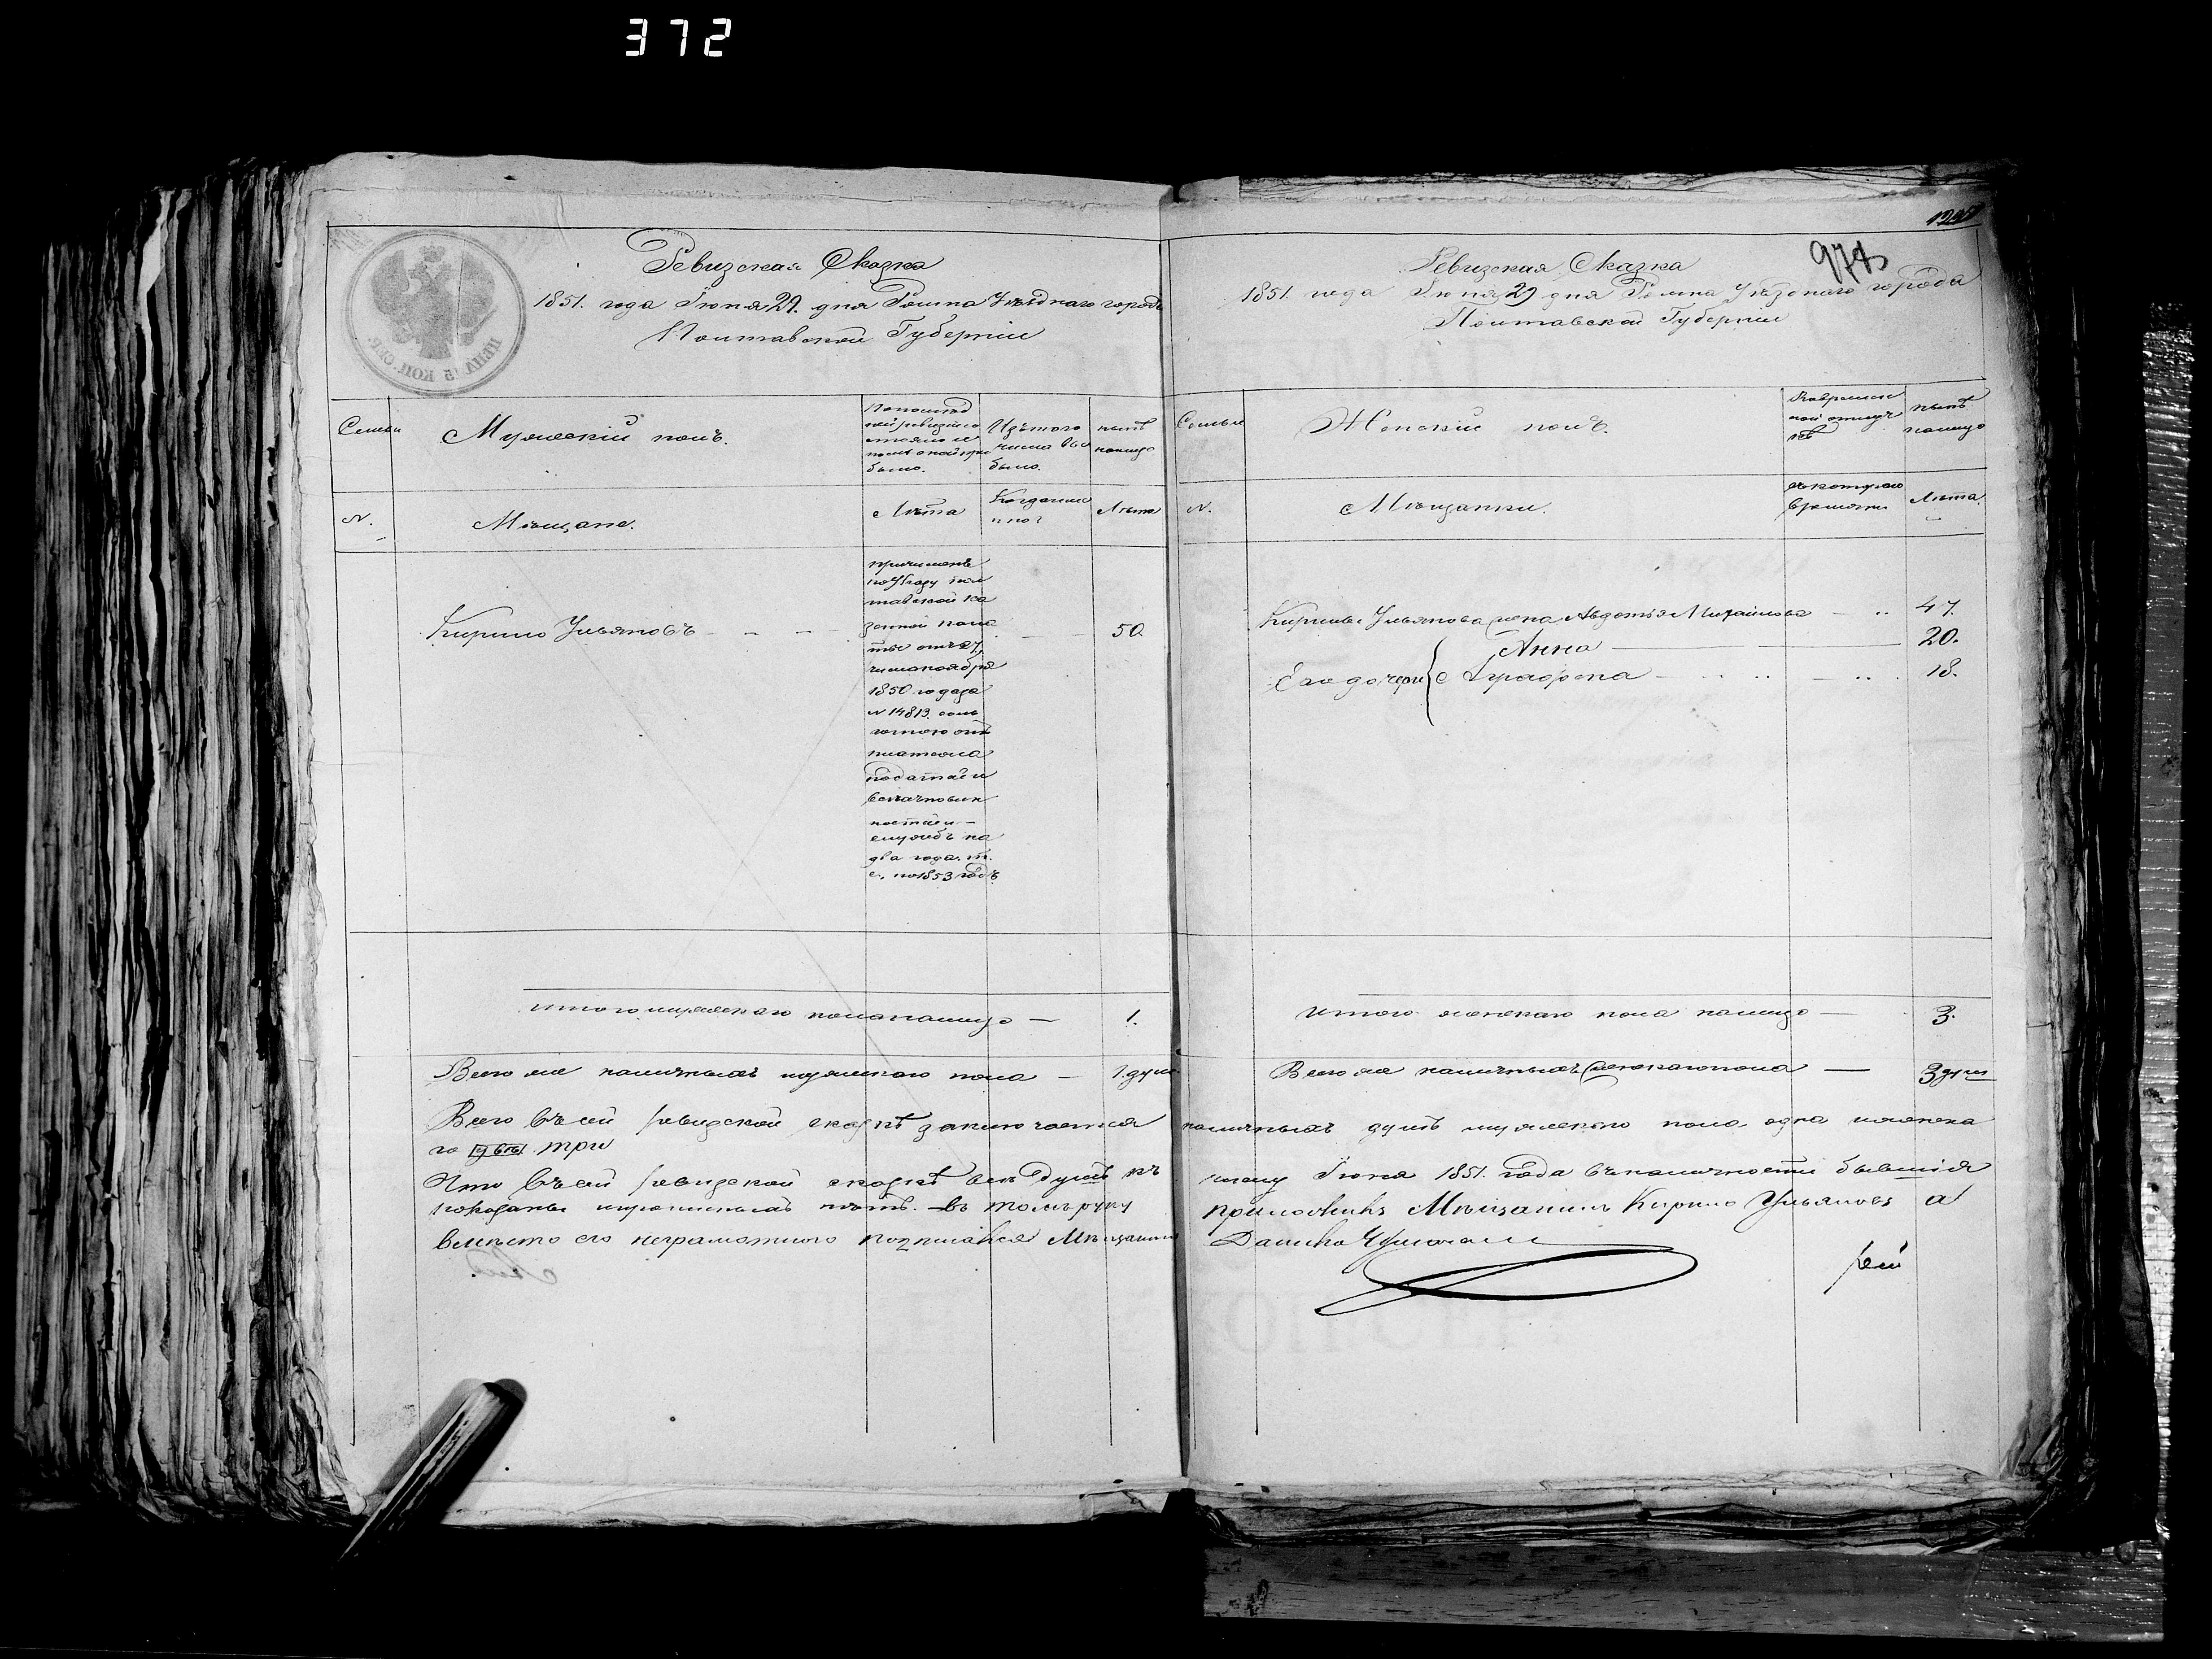 372
Ревизская Сказка
1851. года Іюня 29. дня Ромна Уѣзднаго города
Полтавской Губерніи
ЦѢНА 15 КОП. СЕР.
Семьи
Мужескій полъ.
По послѣд
ней ревизіи со
стояло и
послѣ оной при
было.
Изъ того
числа вы
было.
нынѣ
налицо
N.
Мѣщане.
Лѣта
Когда именно
Лѣта
Кирило Ульяновъ
50.
причисленъ
по Указу Пол
тавской Ка
зенной Пала
ты отъ 27
числа ноября
1850 года за
N 14813. съ ль
готою отъ
платежа
податей и
повин
ностей
службъ на
два года, т.
е. по 1853 годъ
итого мужескаго пола налицо — 1.
Всего же наличныхъ мужескаго пола — 1. душ
1245
974
Ревизская Сказка
1851. года Іюня 29 дня Ромна Уѣзднаго города
Полтавской Губерніи
Семьи
Женскій полъ.
Во временн
ной отлуч
кѣ
нынѣ
налицо
N.
Мѣщанки.
съ котораго
времени
Лѣта.
Кирилы Ульянова жена Авдотья Михайлова 47.
Анна 20.
Его дочери Аграфена 18.
итого женскаго пола налицо — 3.
Всего же наличныхъ женскаго пола — 3 душ
Всего въ сей ревизской сказкѣ заключается наличныхъ душъ мужескаго пола одна и женска
го двѣ три
Что въ сей ревизской сказкѣ всѣ души къ числу Іюня 1851. года въ наличности бывшія
показаны и прописныхъ нѣтъ. въ томъ руку приложилъ Мѣщанинъ Кирило Ульяновъ а
вмѣсто его неграмотного подписался Мѣщанинъ Данило